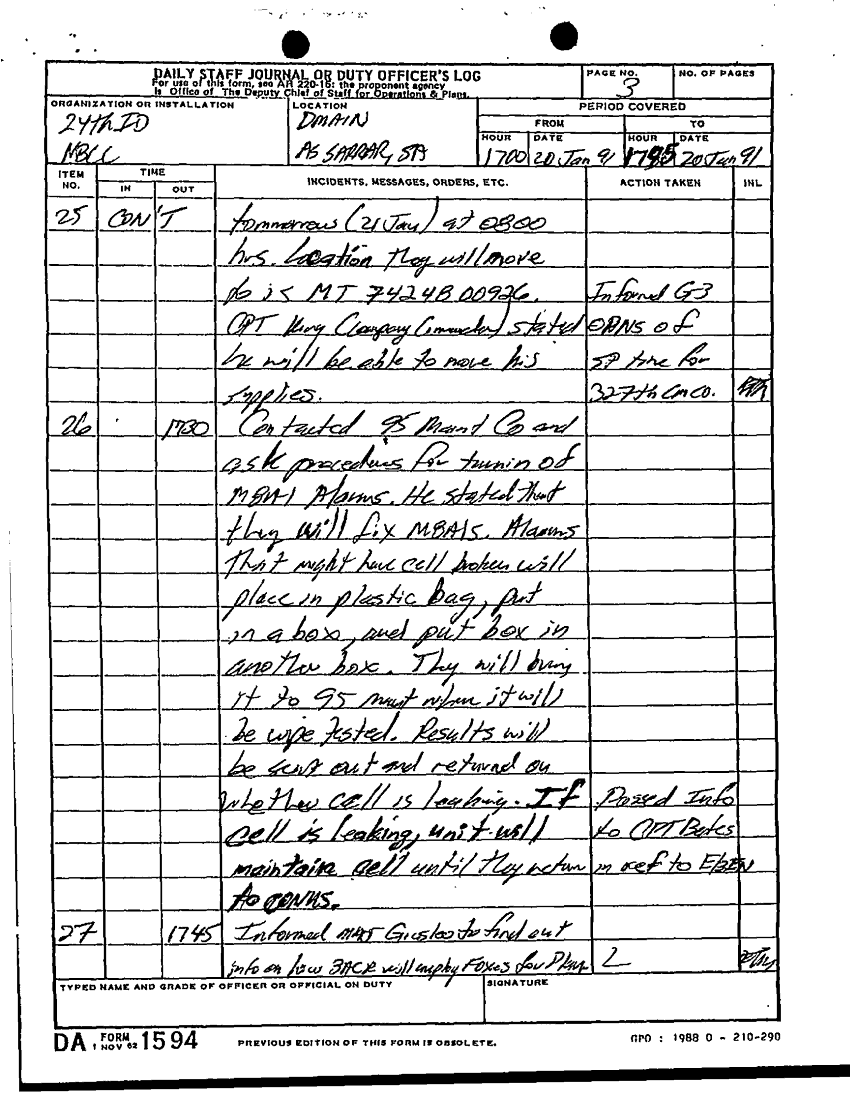 DAILY STAFF JOURNAL OR DUTY OFFICER'S LOG
For use of this form, see AR 220-15; the proponent agency
is Office of The Deputy Chief of Staff for Operations & Plans.
PAGE NO.
3
NO. OF PAGES
ORGANIZATION OR INSTALLATION
24th ID
NBCC
LOCATION
DMAIN
AS SARRAR, SA
PERIOD COVERED
FROM
TO
HOUR DATE HOUR DATE
1700 20 Jan 91 1745 20 Jan 91
ITEM NO.
TIME
IN OUT
INCIDENTS, MESSAGES, ORDERS, ETC.
ACTION TAKEN
INL
25 CON'T tommorrow (21 Jan) at 0800
hrs. Location they will move
to is MT 74248 00926. Informed G3
CPT King (Company Commander) stated OPNS of
he will be able to move his SP time for
supplies. 327th Cm Co.
26 1730 Contacted 95 Maint Co and
ask procedures for turnin of
M8A1 Alarms. He stated that
they will fix M8A1s. Alarms
that might have cell broken will
place in plastic bag, put
in a box, and put box in
another box. They will bring
it to 95 maint where it will
be wipe tested. Results will
be sent out and returned on
whether cell is leaking. If Passed Info
cell is leaking, unit will to CPT Bates
maintain cell until they return in ref to
to CONUS.
27 1745 Informed to find out
info on how 3ACR will employ Foxes for Phase 2
TYPED NAME AND GRADE OF OFFICER OR OFFICIAL ON DUTY
SIGNATURE
DA FORM 1 NOV 62 1594
PREVIOUS EDITION OF THIS FORM IS OBSOLETE.
GPO : 1988 O - 210-290